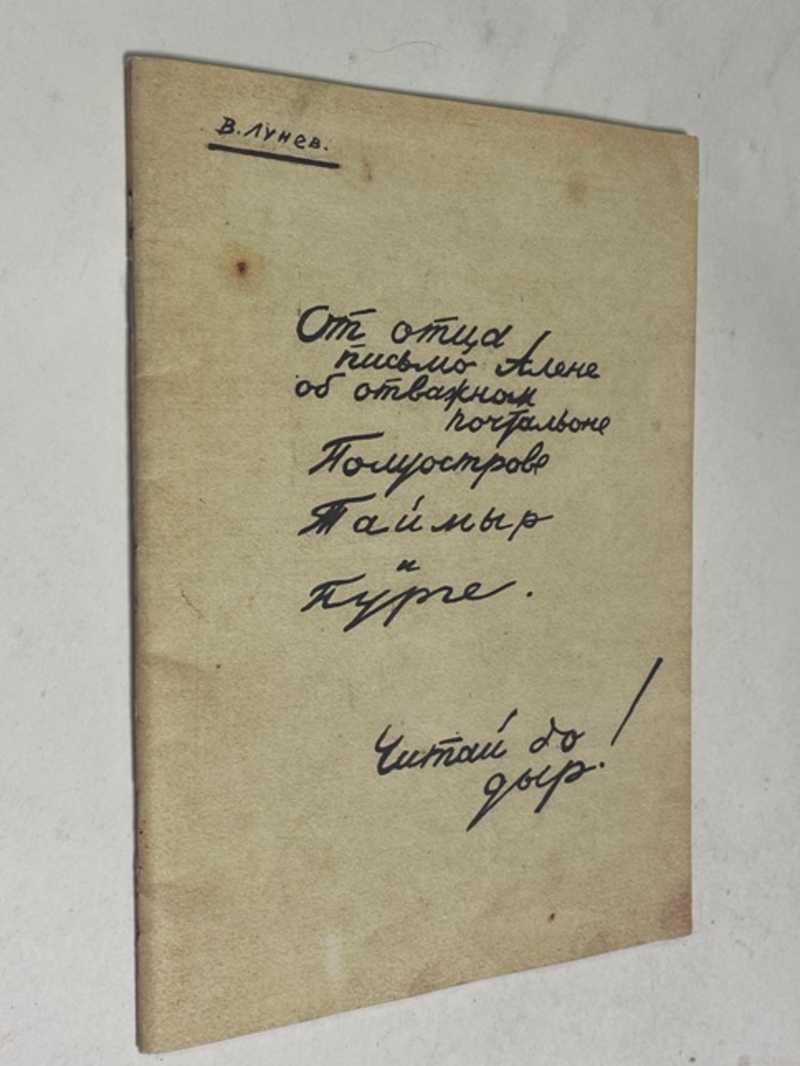 В. Лунев.
От отца
письмо Алене
об отважном
почтальоне
Полуострове
Таймыр
и
Пурге.
Читай до
дыр!